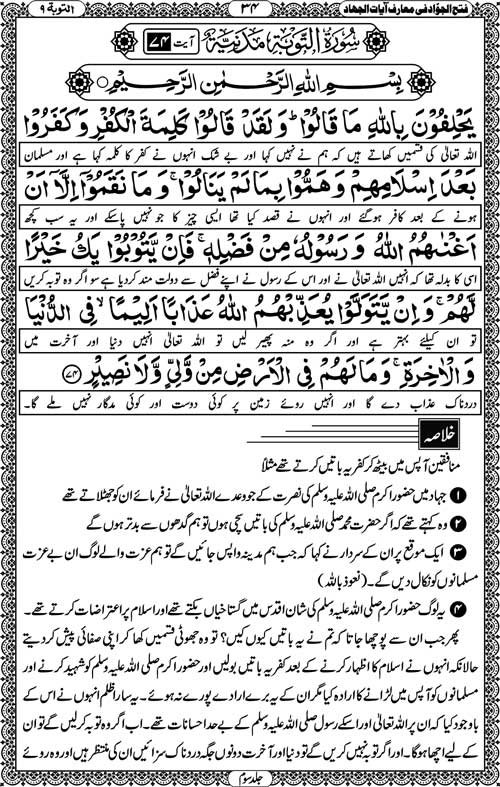 فتح الجوّاد فی معارف آیات الجهاد ۳۴ التوبة ۹
سُوْرَةُ التَّوْبَةِ مَدَنِيَّةٌ آیت ۷۴
بِسْمِ اللهِ الرَّحْمٰنِ الرَّحِيْمِ
يَحْلِفُوْنَ بِاللهِ مَا قَالُوْا ؕ وَلَقَدْ قَالُوْا كَلِمَةَ الْكُفْرِ وَكَفَرُوْا
اللہ تعالیٰ کی قسمیں کھاتے ہیں کہ ہم نے نہیں کہا اور بے شک انہوں نے کفر کا کلمہ کہا ہے اور مسلمان
بَعْدَ اِسْلَامِهِمْ وَهَمُّوْا بِمَا لَمْ يَنَالُوْا ۚ وَمَا نَقَمُوْۤا اِلَّاۤ اَنْ
ہونے کے بعد کافر ہوگئے اور انہوں نے قصد کیا تھا ایسی چیز کا جو نہیں پاسکے اور یہ سب کچھ
اَغْنٰىهُمُ اللهُ وَرَسُوْلُهٗ مِنْ فَضْلِهٖ ۚ فَاِنْ يَّتُوْبُوْا يَكُ خَيْرًا
اسی کا بدلہ تھا کہ انہیں اللہ تعالیٰ نے اور اس کے رسول نے اپنے فضل سے دولت مند کردیا ہے سو اگر وہ توبہ کریں
لَّهُمْ ۚ وَاِنْ يَّتَوَلَّوْا يُعَذِّبْهُمُ اللهُ عَذَابًا اَلِيْمًا ۙ فِى الدُّنْيَا
تو ان کیلئے بہتر ہے اور اگر وہ منہ پھیر لیں تو اللہ تعالیٰ انہیں دنیا اور آخرت میں
وَالْاٰخِرَةِ ۚ وَمَا لَهُمْ فِى الْاَرْضِ مِنْ وَّلِىٍّ وَّلَا نَصِيْرٍ ﴿۷۴﴾
دردناک عذاب دے گا اور انہیں روئے زمین پر کوئی دوست اور کوئی مددگار نہیں ملے گا۔
خلاصہ
منافقین آپس میں بیٹھ کر کفریہ باتیں کرتے تھے مثلاً
۱ جہاد میں حضور اکرم صلی اللہ علیہ وسلم کی نصرت کے جو وعدے اللہ تعالیٰ نے فرمائے ان کو جھٹلاتے تھے
۲ وہ کہتے تھے کہ اگر حضرت محمد صلی اللہ علیہ وسلم کی باتیں سچی ہوں تو ہم گدھوں سے بدتر ہوں گے
۳ ایک موقع پر ان کے سردار نے کہا کہ جب ہم مدینہ واپس جائیں گے تو ہم عزت والے لوگ ان بے عزت
مسلمانوں کو نکال دیں گے۔ (نعوذ باللہ)
۴ یہ لوگ حضور اکرم صلی اللہ علیہ وسلم کی شان اقدس میں گستاخیاں بکتے تھے اور اسلام پر اعتراضات کرتے تھے۔
پھر جب ان سے پوچھا جاتا کہ تم نے یہ باتیں کیوں کیں؟ تو وہ جھوٹی قسمیں کھا کر اپنی صفائی پیش کر دیتے
حالانکہ انہوں نے اسلام کا اظہار کرنے کے بعد کفریہ باتیں بولیں اور حضور اکرم صلی اللہ علیہ وسلم کو شہید کرنے اور
مسلمانوں کو آپس میں لڑانے کا ارادہ کیا مگر ان کے یہ برے ارادے پورے نہ ہوئے۔ یہ سارا ظلم انہوں نے اس کے
باوجود کیا کہ ان پر اللہ تعالیٰ اور اسکے رسول صلی اللہ علیہ وسلم کے بے حد احسانات تھے۔ اب اگر وہ توبہ کر لیں گے تو ان
کے لیے اچھا ہوگا۔ اور اگر توبہ نہیں کریں گے تو دنیا اور آخرت دونوں جگہ دردناک سزائیں ان کی منتظر ہیں اور وہ روئے
جلد سوم